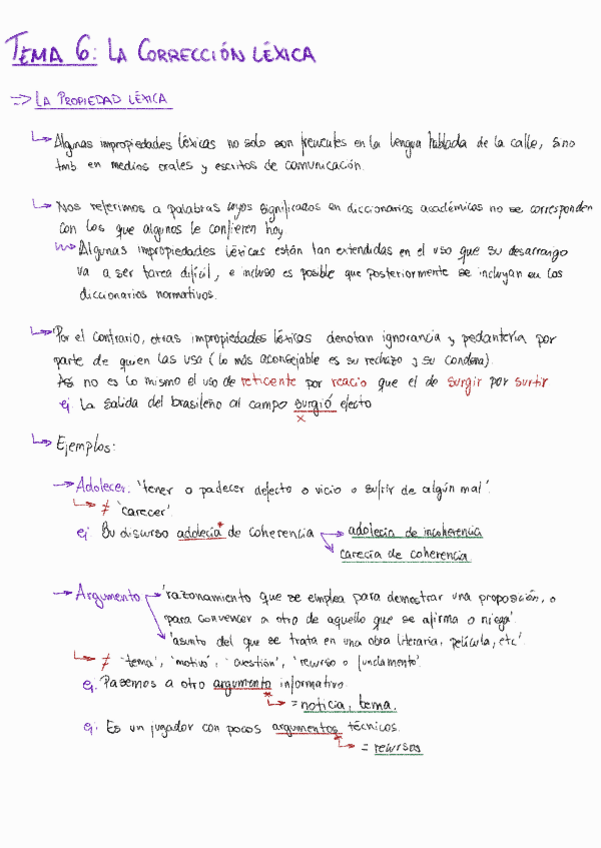 TEMA 6: LA CORRECCIÓN LÉXICA
=> LA PROPIEDAD LÉXICA
↳ Algunas impropiedades léxicas no solo son frecuentes en la lengua hablada de la calle, sino
tmb en medios orales y escritos de comunicación.
↳ Nos referimos a palabras cuyos significados en diccionarios académicos no se corresponden
con los que algunos le confieren hoy.
Algunas impropiedades léxicas están tan extendidas en el uso que su desarraigo
va a ser tarea difícil, e incluso es posible que posteriormente se incluyan en los
diccionarios normativos.
↳ Por el contrario, otras impropiedades léxicas denotan ignorancia y pedantería por
parte de quien las usa (lo más aconsejable es su rechazo y su condena).
Así no es lo mismo el uso de reticente por reacio que el de surgir por surtir
ej. La salida del brasileño al campo surgió efecto
x
↳ Ejemplos:
→ Adolecer: 'tener o padecer defecto o vicio o sufrir de algún mal'.
↳ ≠ 'carecer'.
ej. Su discurso adolecía* de coherencia → adolecía de incoherencia
carecía de coherencia
→ Argumento → 'razonamiento que se emplea para demostrar una proposición, o
para convencer a otro de aquello que se afirma o niega'.
'asunto del que se trata en una obra literaria, película, etc'
↳ ≠ 'tema', 'motivo', 'cuestión', 'recurso o fundamento'.
ej. Pasemos a otro argumento informativo.
* ↳ = noticia, tema.
ej. Es un jugador con pocos argumentos técnicos.
* ↳ = recursos